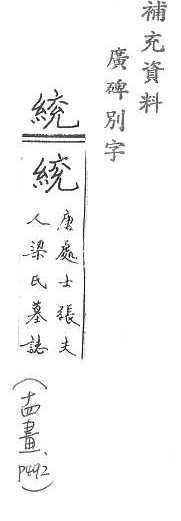 補充資料
廣碑別字
統
統
唐處士張夫
人梁氏墓誌
(十四畫、P492)